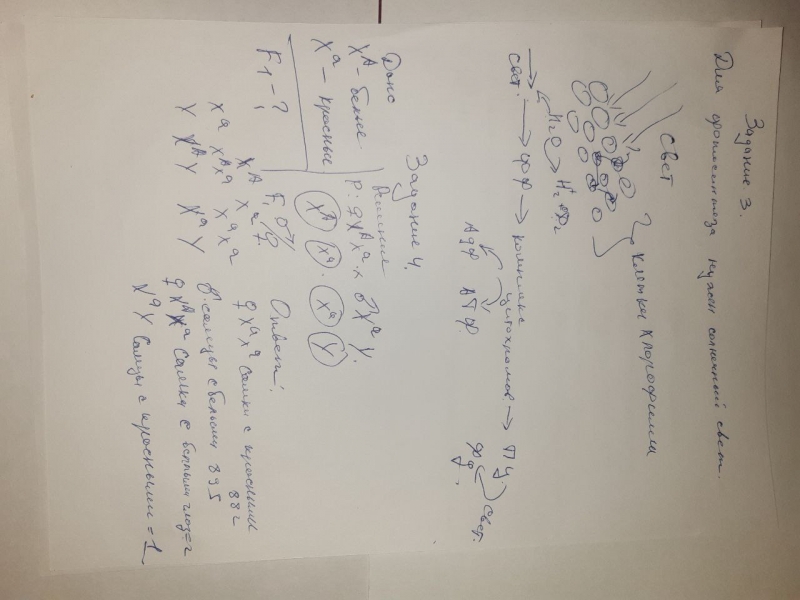 Задание 3.
Для фотосинтеза нужен солнечный свет.
свет
клетки хлорофилла
H2O
свет. → → комплекс цитохромов →
АДФ АТФ
свет.
Задание 4.
Дано
X^A – белые
X^a – красные
F1 – ?
Решение
P: ♀ X^A X^a x ♂ X^a Y.
X^A X^a X^a Y
F1
X^A X^a
X^a X^A X^a X^a X^a
Y X^A Y X^a Y
Ответ:
♀ X^a X^a самки с красными 882
самцы с белыми 895
самка с белыми глаз = 2
X^a Y самцы с красными = 1